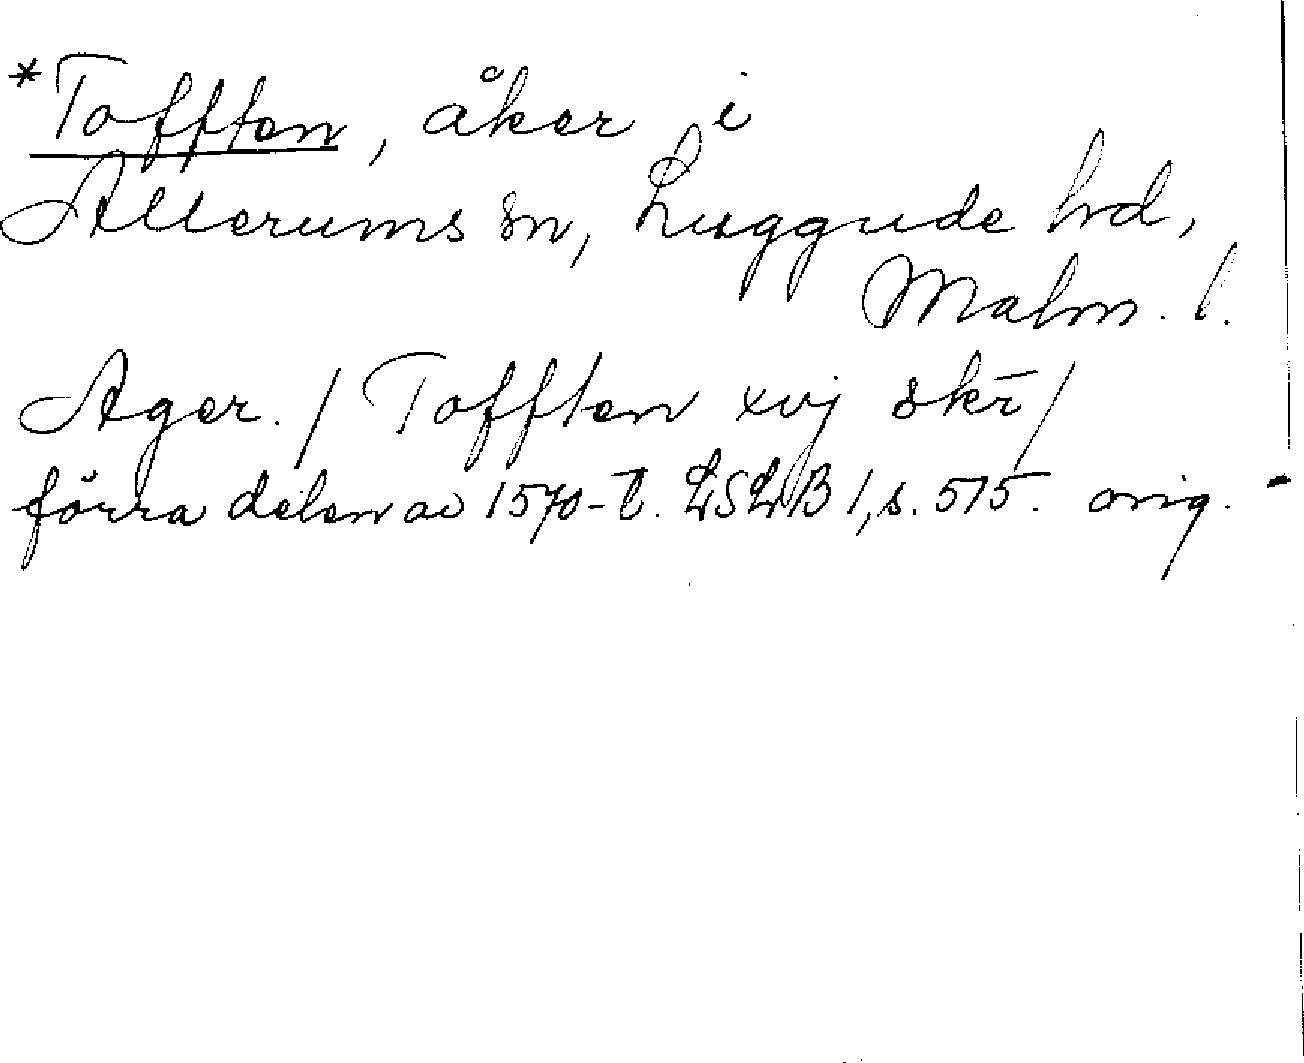 *Tofften, åker i
Allerums sn, Luggude hd,
Malm. l.
Ager. / Tofften xvj skr̄ /
förra delen av 1570-t. LSLB 1, s. 575. orig. -